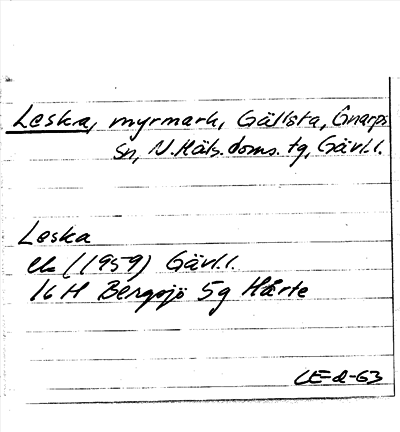 Leska, myrmark, Gällsta, Gnarps
sn, N.Häls.doms.tg, Gävl.l.
Leska
ek (1959) Gävl.l.
16H Bergsjö 5g Hårte